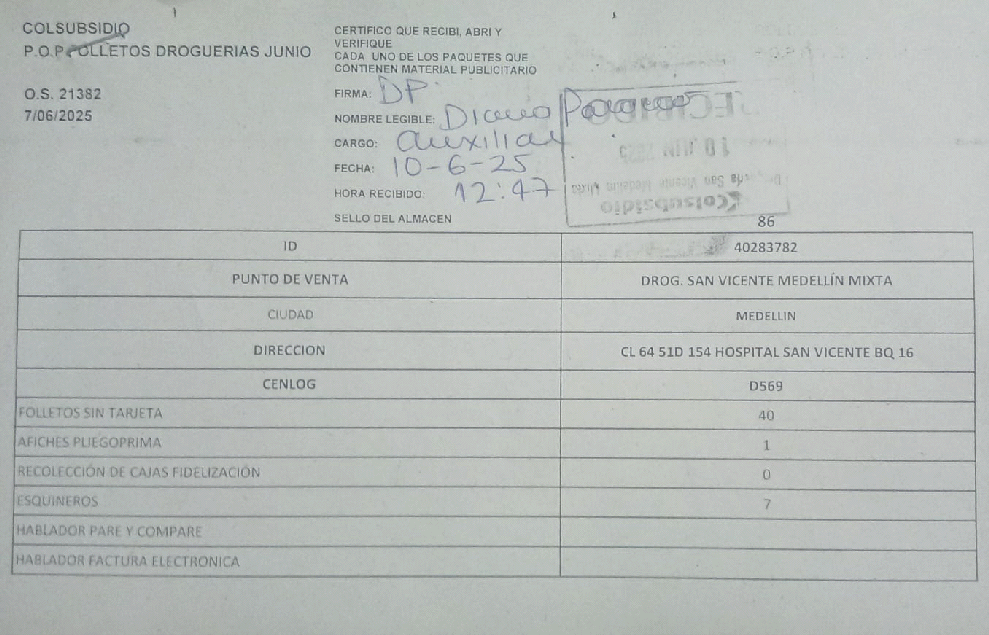 COLSUBSIDIO
P.O.P FOLLETOS DROGUERIAS JUNIO
O.S. 21382
7/06/2025
CERTIFICO QUE RECIBI, ABRI Y
VERIFIQUE
CADA UNO DE LOS PAQUETES QUE
CONTIENEN MATERIAL PUBLICITARIO
FIRMA: DP
NOMBRE LEGIBLE: Diana
CARGO: Auxiliar
FECHA: 10-6-25
HORA RECIBIDO: 12:47
SELLO DEL ALMACEN
RECIBIDO
10 JUN 2025
San Vicente Medellín Mixta
Colsubsidio
86
ID 40283782
PUNTO DE VENTA DROG. SAN VICENTE MEDELLÍN MIXTA
CIUDAD MEDELLIN
DIRECCION CL 64 51D 154 HOSPITAL SAN VICENTE BQ 16
CENLOG D569
FOLLETOS SIN TARJETA 40
AFICHES PLIEGOPRIMA 1
RECOLECCIÓN DE CAJAS FIDELIZACIÓN 0
ESQUINEROS 7
HABLADOR PARE Y COMPARE
HABLADOR FACTURA ELECTRONICA